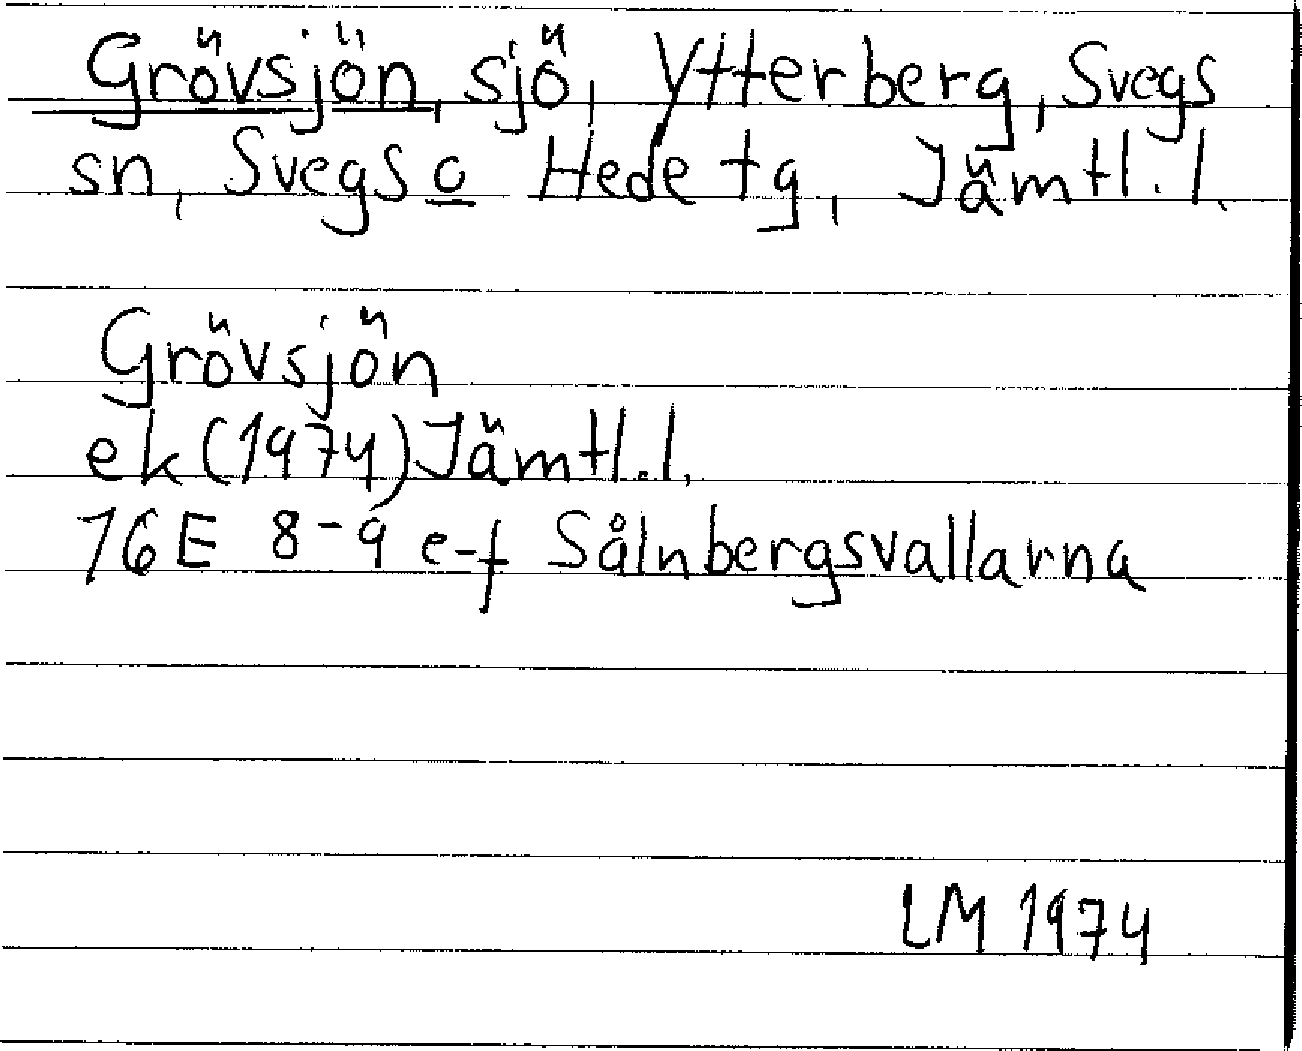 Grövsjön, sjö, Ytterberg, Svegs
sn, Svegs o Hede tg, Jämtl. l.
Grövsjön
ek (1974) Jämtl. l.
16E 8-9 e-f Sålnbergsvallarna
LM 1974